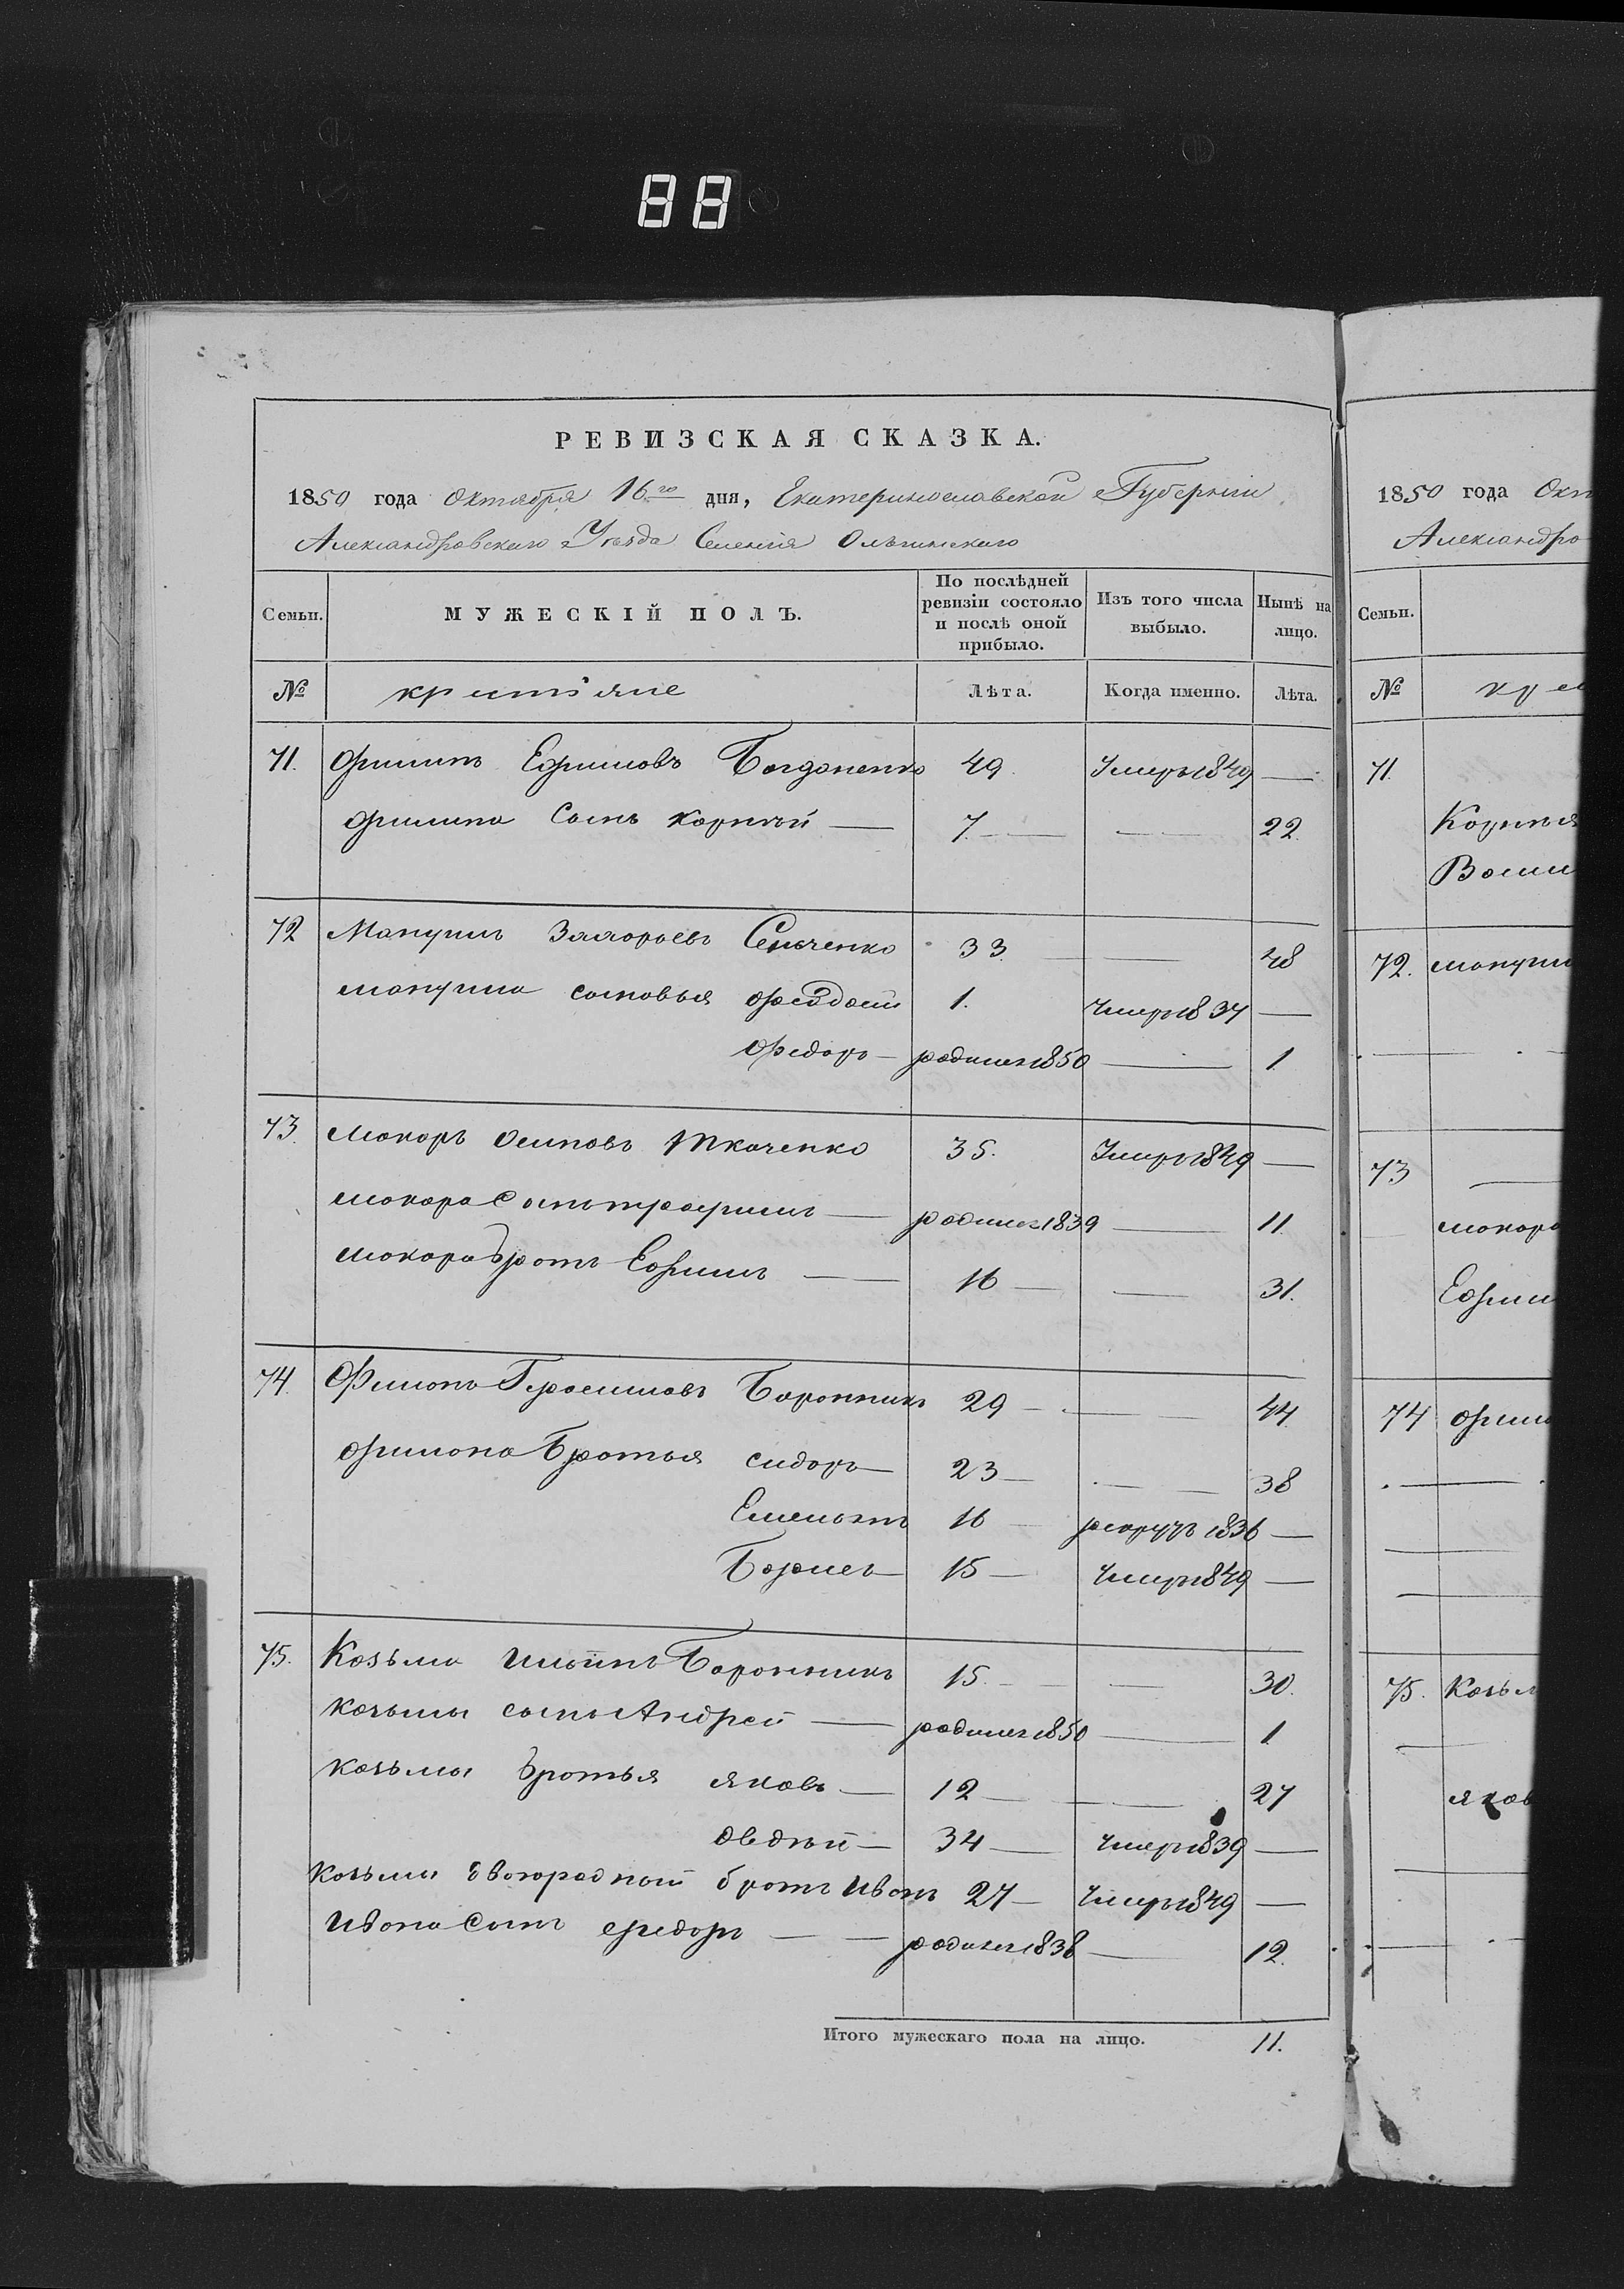 88
РЕВИЗСКАЯ СКАЗКА.
1850 года Октября 16го дня, Екатеринославской Губернии
Александровскаго Уезда Селения Ольгинскаго
Семьи. МУЖЕСКІЙ ПОЛЪ. По послѣдней ревизіи состояло и послѣ оной прибыло. Изъ того числа выбыло. Нынѣ на лицо.
№ крестьяне Лѣта. Когда именно. Лѣта.
71. Филипъ Ефимовъ Богданенко 49. Умеръ 1849 —
Филипа Сынъ Корнѣй — 7. — — 22.
72 Мануилъ Сенченко 33. — 48
мануила сыновья 1. Умеръ 1834 —
Федоръ — родился 1850 — 1
73. Макаръ Осиповъ Ткаченко 35. Умеръ 1849 —
макара Сынъ трофимъ — родился 1839 — 11.
макара братъ Ефимъ — 16 — — 31.
74. Филонъ Герасимовъ Баронникъ 29 — — 44.
Филона Братья сидоръ — 23 — — 38
Емельянъ 16 — рекрутъ 1836 —
Борисъ — 15 — Умеръ 1849 —
75. Козьма Ильинъ Баронникъ 15. — — 30.
козьмы сынъ Андрей — родился 1850 — 1
козьмы братья яковъ — 12 — — 27
авдѣй — 34 — Умеръ 1839 —
козьмы двоюродный братъ Иванъ 27 — Умеръ 1849 —
Ивана Сынъ федоръ — — родился 1838 — 12.
Итого мужескаго пола на лицо. 11.
1850 года Окт
Александро
Семьи.
№ кре
71.
Корнѣя
Васил
72. мануил
73
макара
Ефим
74 фило
75. Козьм
яков